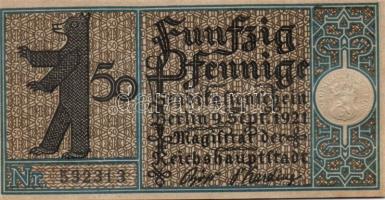 50
Fünfzig
Pfennige
Stadtkassenschein
Berlin 9. Sept. 1921
Magistrat der
Reichshauptstadt
Nr. 592313